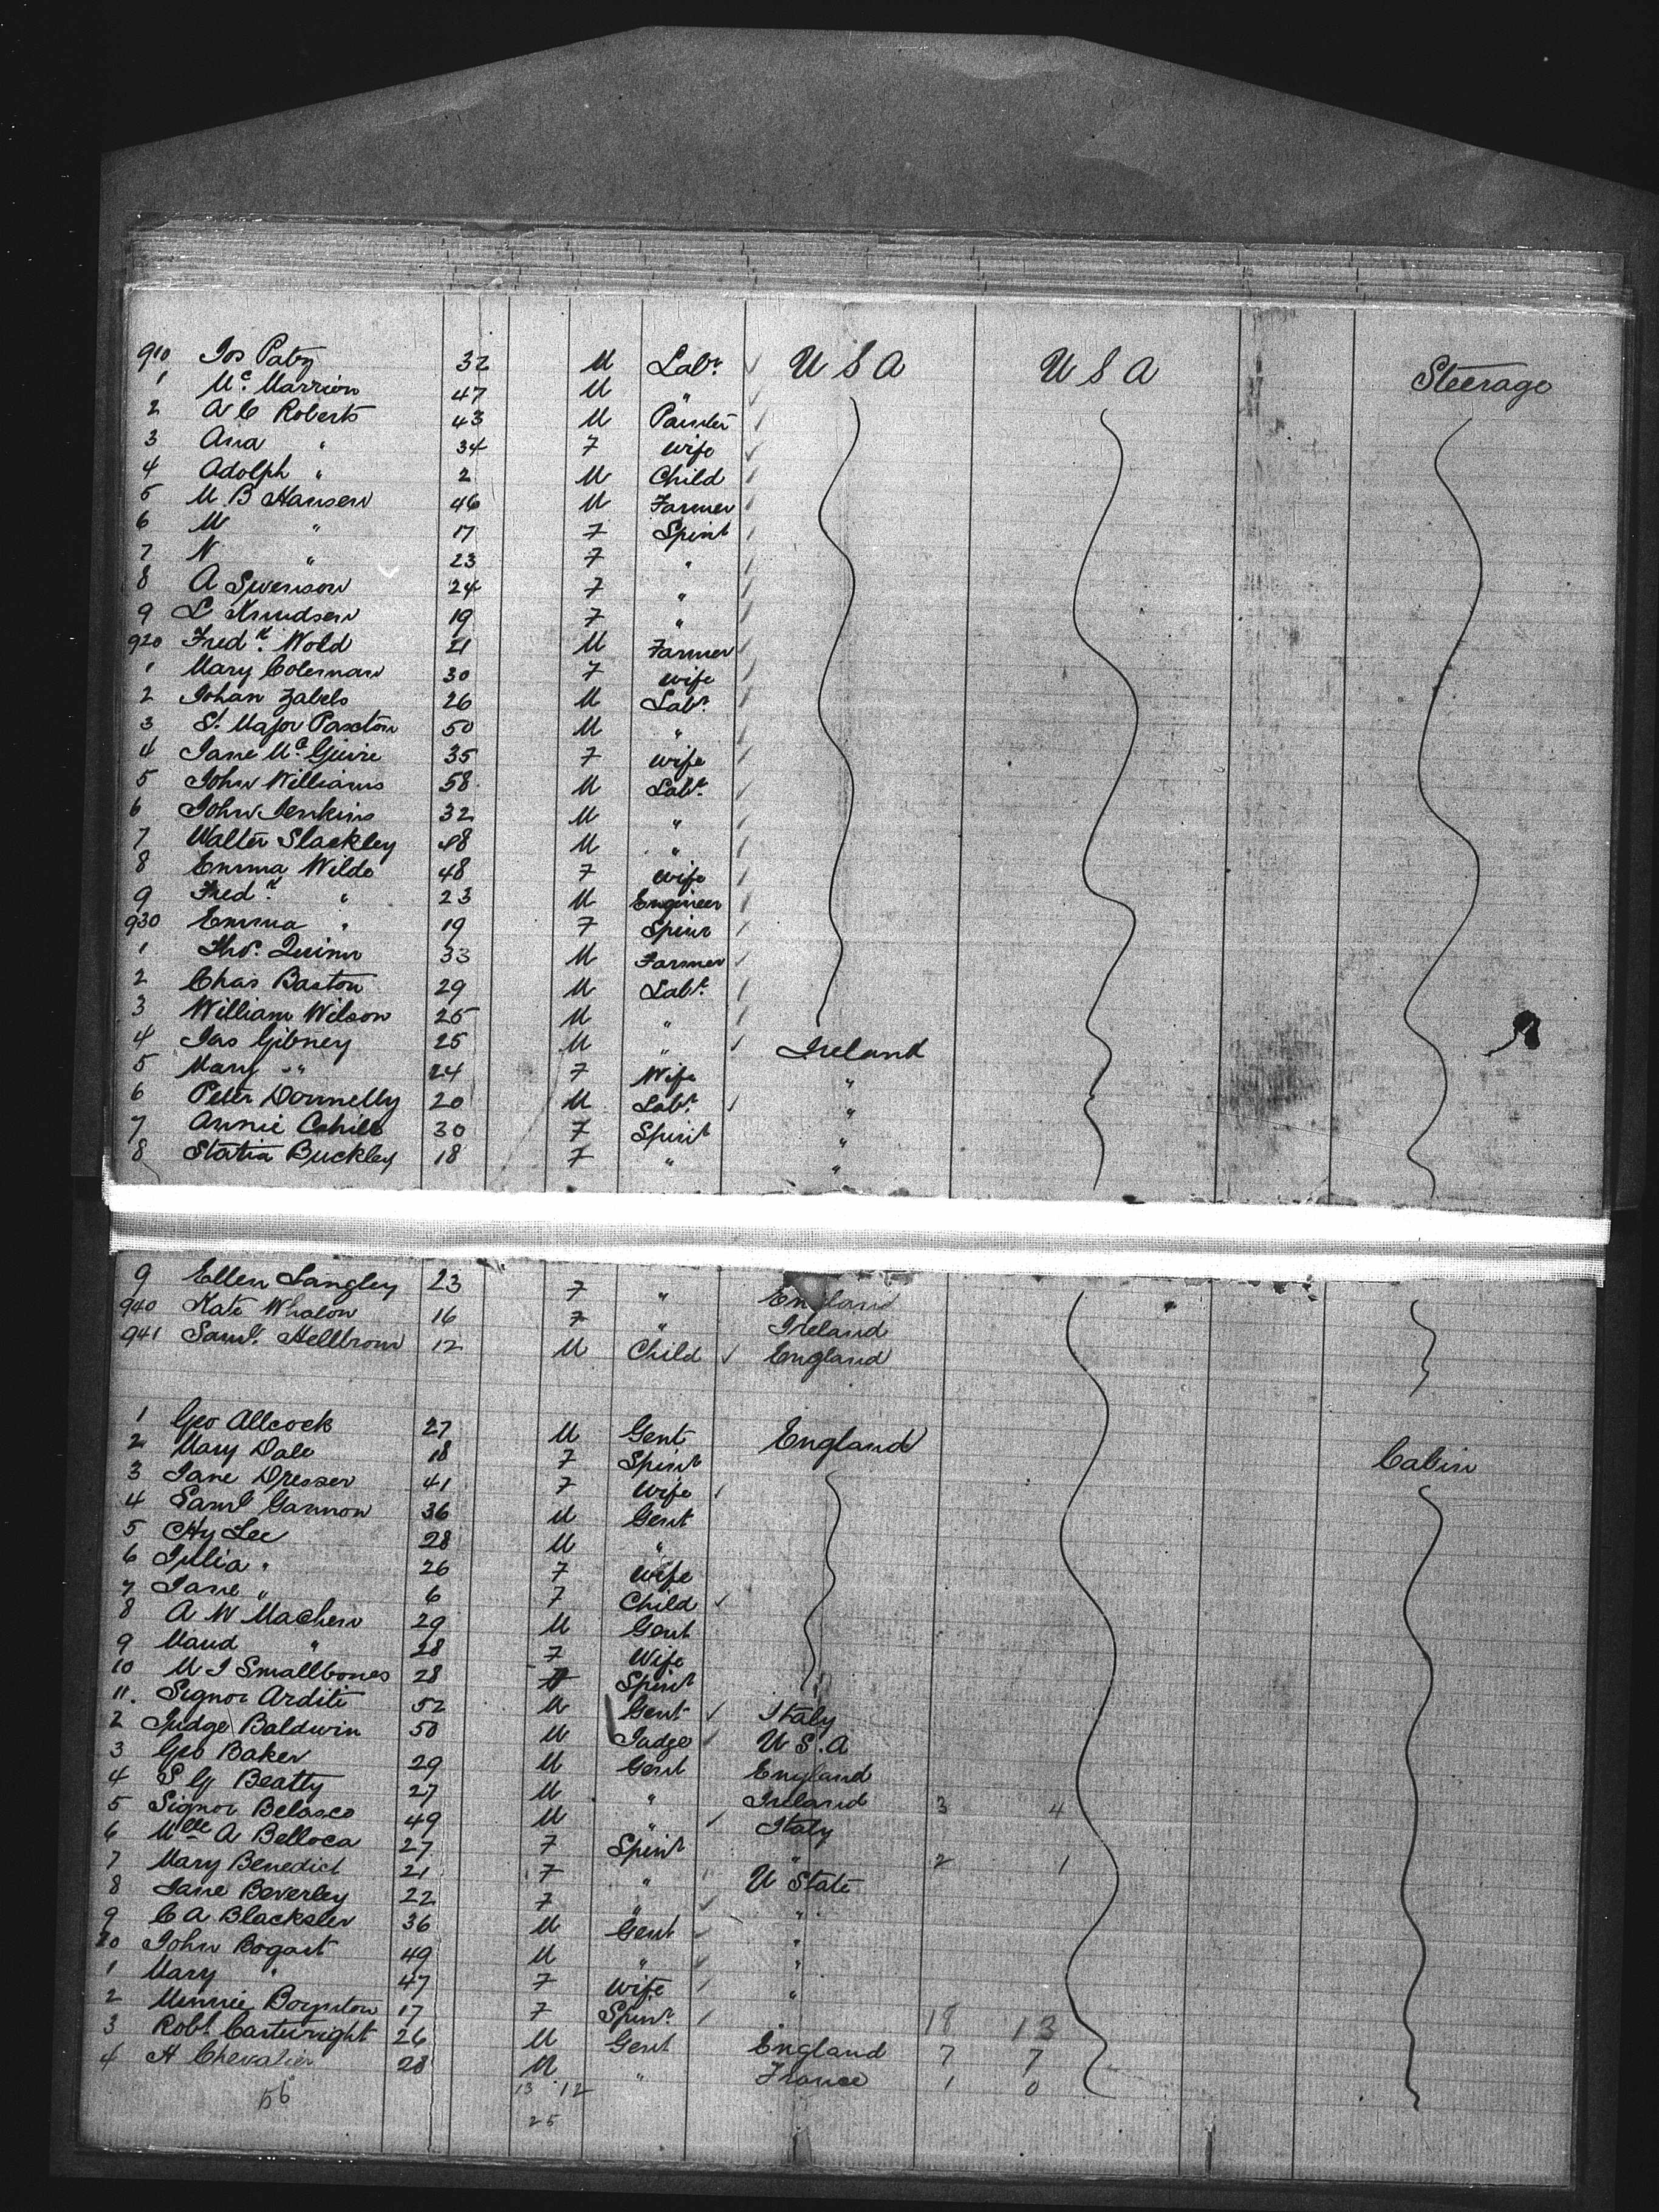 910 Jos Paty 32 M Labr. ✓ U S A U S A Steerage
1 Mc. Marrion 47 M "
2 A C Roberts 43 M Painter
3 Ana " 34 F wife
4 Adolph " 2 M Child
5 M B Hansen 46 M Farmer
6 M " 17 F Spinr
7 N " 23 F "
8 A Swenson 24 F "
9 L Knudsen 19 F "
920 Fredk. Wold 21 M Farmer
1 Mary Coleman 30 F wife
2 Johan Zabels 26 M Labr.
3 St. Major Paxton 50 M "
4 Jane Mc. Guire 35 F wife
5 John Williams 58 M Labr.
6 John Jenkins 32 M "
7 Walter Slackley 48 M "
8 Emma Wilde 48 F wife
9 Fredk. " 23 M Engineer
930 Emma " 19 F Spinr
1 Thos. Quinn 33 M Farmer
2 Chas Baston 29 M Labr.
3 William Wilson 25 M "
4 Jas Gibney 25 M " Ireland
5 Mary " 24 F Wife "
6 Peter Donnelly 20 M Labr. "
7 Annie Cahill 30 F Spinr "
8 Statia Buckley 18 F " "
9 Ellen Langley 23 F " England
940 Kate Whalon 16 F " Ireland
941 Saml. Hellbrom 12 M Child ✓ England
1 Geo Allcock 27 M Gent England Cabin
2 Mary Dale 18 F Spinr
3 Jane Dresser 41 F Wife
4 Saml Gannon 36 M Gent
5 Hy Lee 28 M "
6 Julia " 26 F Wife
7 Jane " 6 F Child ✓
8 A W Machen 29 M Gent
9 Maud " 28 F Wife
10 M J Smallbones 28 F Spinr
11. Signor Arditi 52 M Gent ✓ Italy
2 Judge Baldwin 50 M Judge U S. A
3 Geo Baker 29 M Gent England
4 S G Beatty 27 M " Ireland 3 4
5 Signor Belasco 49 M " Italy
6 Mlle A Belloca 27 F Spinr " 2 1
7 Mary Benedict 21 F " U State
8 Jane Beverley 22 F " "
9 C A Blacksler 36 M Gent "
20 John Bogart 49 M " "
1 Mary " 47 F Wife "
2 Minnie Boynton 17 F Spinr. 18 13
3 Robt. Cartwright 26 M Gent England 7 7
4 H Chevalier 28 M " France 1 0
56 13 12
25